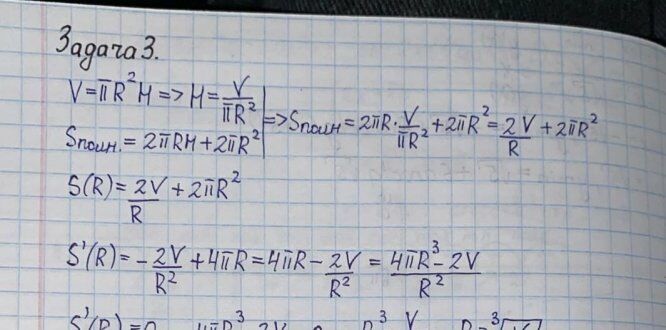 Задача 3.
V = πR²H => H = V/πR²
Sполн. = 2πRH + 2πR²
=> Sполн = 2πR · V/πR² + 2πR² = 2V/R + 2πR²
S(R) = 2V/R + 2πR²
S'(R) = -2V/R² + 4πR = 4πR - 2V/R² = 4πR³ - 2V/R²
S'(R) = 0